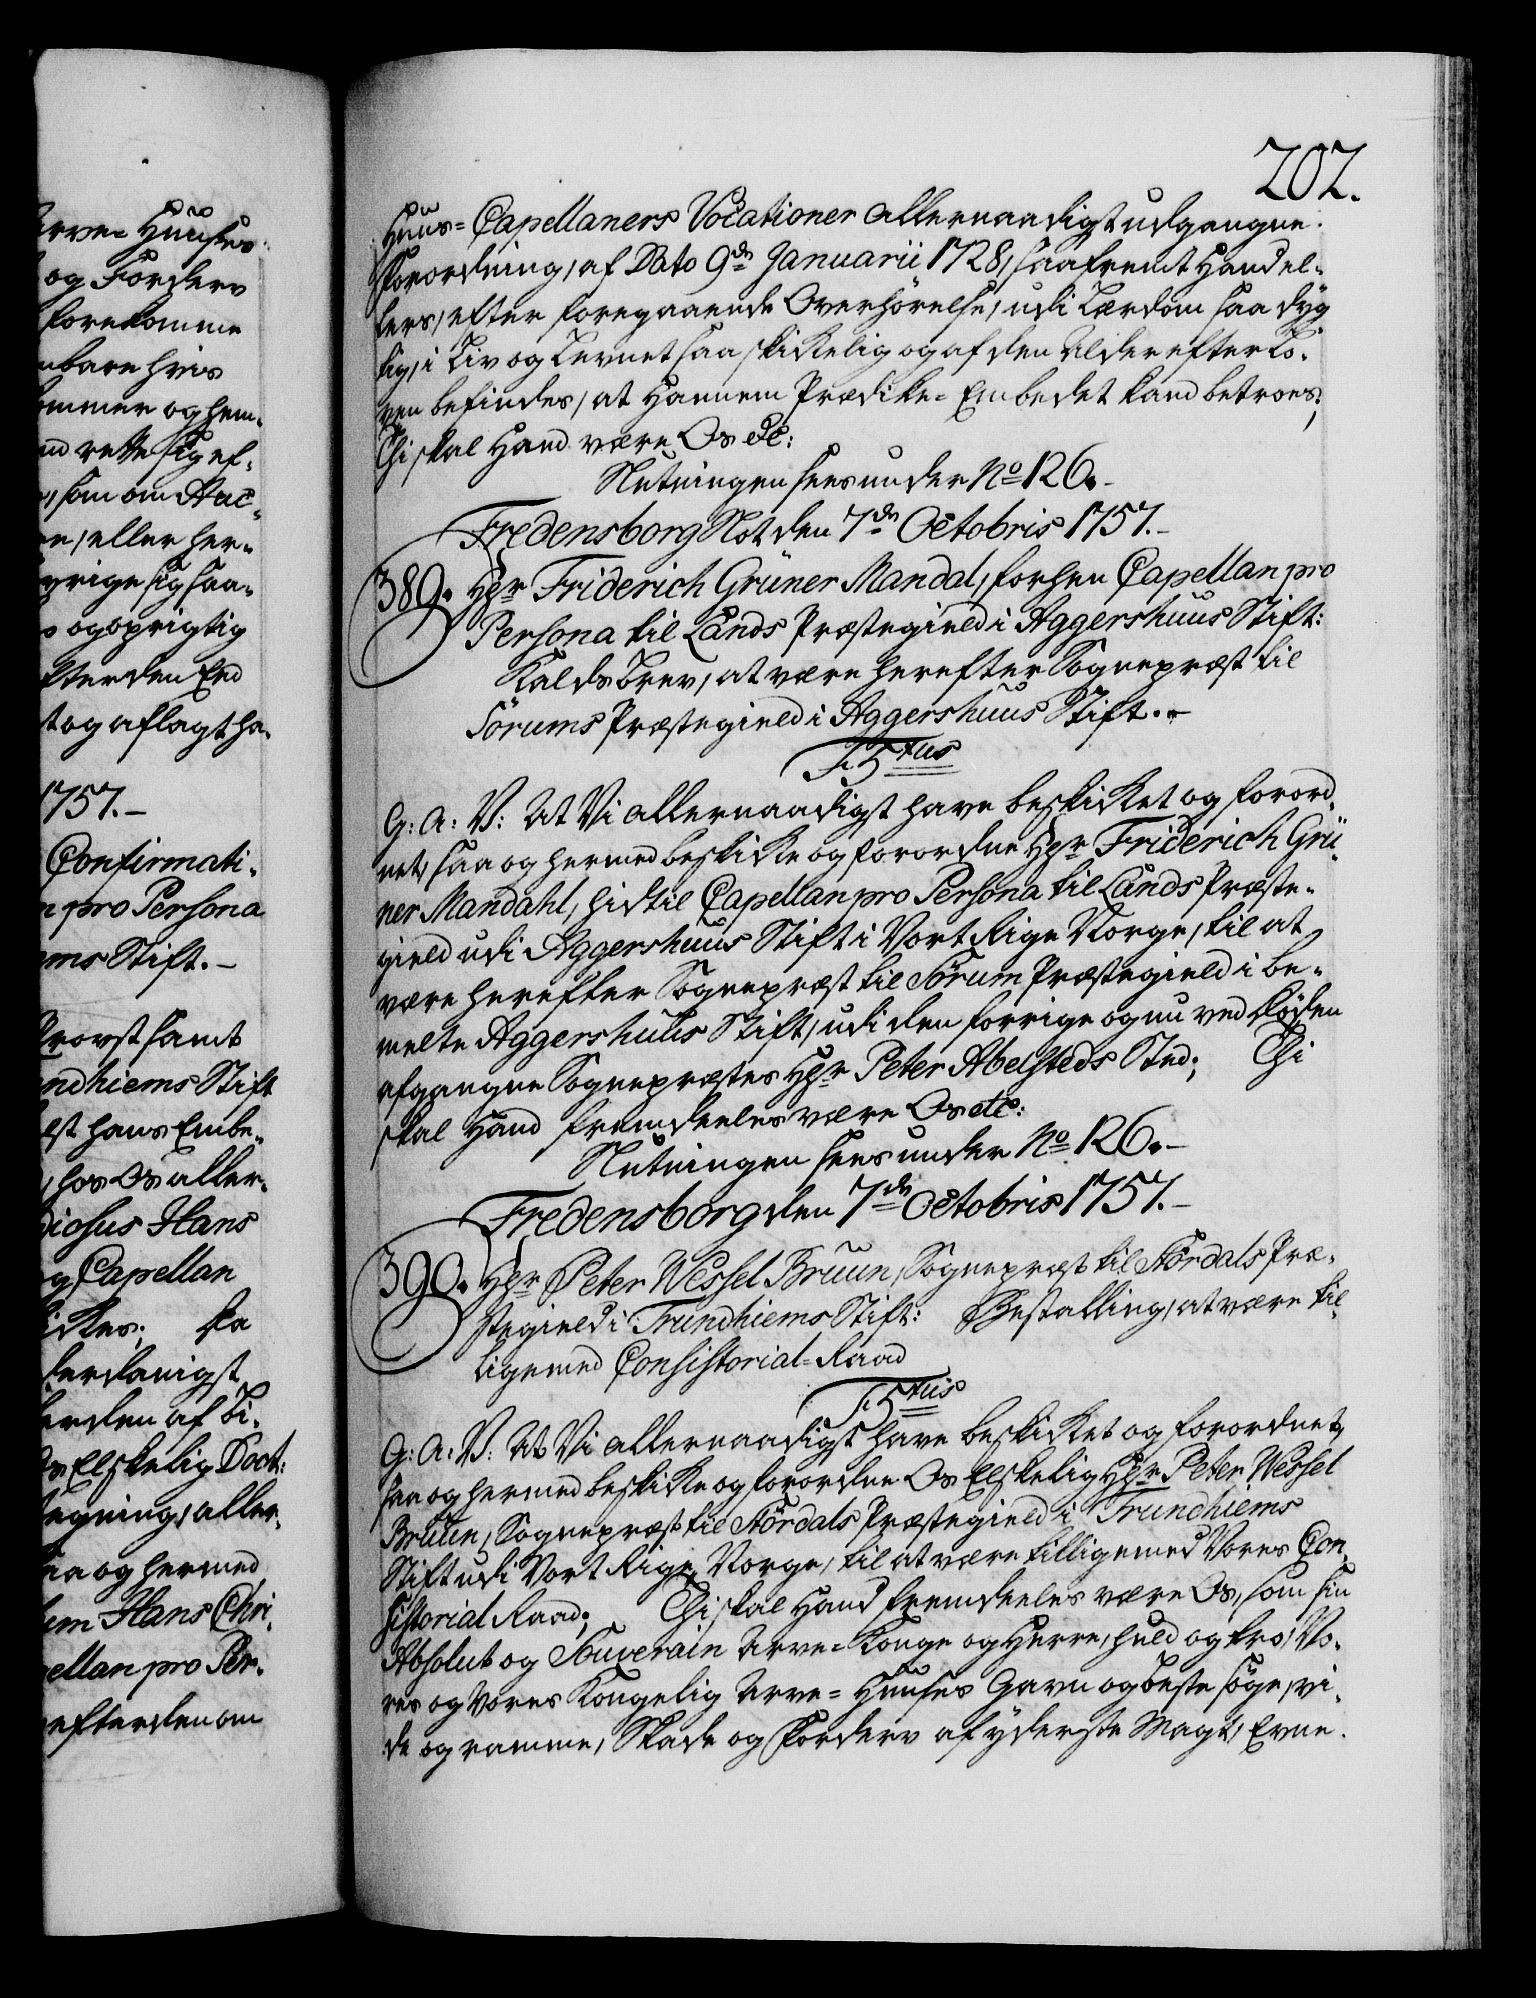 202.
Huus= Capellaners Vocationer allernaadigst udgangne
Forordning, af Dato 9de Januarii 1728, saafremt Hand el-
lers, efter foregaaende Overhörelse, udi Lærdom saa dyg
tig, i Liv og Levnet saa skikkelig og af den Alder efter Lo-
ven befindes, at Hannem Prædike= Embedet kand betroes;
Thi skal Hand være Os etc:
Slutningen sees under No 126.-
Fredensborg Slot den 7de Octobris 1757.-
389. Hr Friderich Grüner Mandal, forhen Capellan pro
Persona til Lands Præstegield i Aggershuus Stift:
Kalds Brev, at være herefter Sognepræst til
Sörums Præstegield i Aggershuus Stift.-
F. 5tus
G: A: V: At Vi allernaadigst have beskikket og forord
net, saa og hermed beskikke og forordne Hr Friderich Grü
ner Mandahl, hidtil Capellan pro Persona til Lands Præste-
gield udi Aggershuus Stift i Vort Rige Norge, til at
være herefter Sognepræst til Sörum Præstegield i be-
melte Aggershuus Stift, udi den forrige og nu ved Döden
afgangne Sognepræstes Hr Peter Abelsteds Sted; Thi
skal Hand fremdeeles være Os etc:
Slutningen sees under No 126.-
Fredensborg den 7de Octobris 1757.-
390. Hr Peter Wessel Bruun, Sognepræst til Stördals Præ-
stegield i Trundhiems Stift: Bestalling, at være til-
ligemed Consistorial= Raad
F. 5tus
G: A: V: At Vi allernaadigst have beskikket og forordnet,
saa og hermed beskikke og forordne Os Elskelig Hr Peter Wessel
Bruun, Sognepræst til Stördals Præstegield i Trundhiems
Stift udi Vort Rige Norge, til at være tilligemed Vores Con
sistorial Raad; Thi skal Hand fremdeeles være Os, som sin
Absolut og Souverain Arve= Konge og Herre, huld og tro, Vo-
res og Vores Kongelig Arve= Huuses Gavn og beste söge, vi-
de og ramme, Skade og Forderv af yderste Magt, Evne